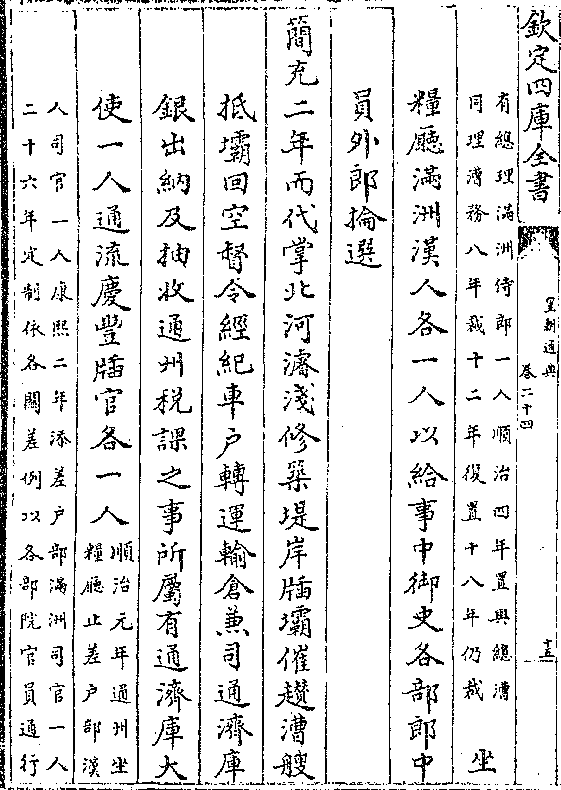 欽定四庫全書
皇朝通典
卷二十四
十五
有總理滿洲侍郎一人順治四年置與總漕
同理漕務八年裁十二年復置十八年仍裁
坐
糧廳滿洲漢人各一人以給事中御史各部郎中
員外郎掄選
簡充二年而代掌北河濬淺修築堤岸牐壩催趲漕艘
抵壩回空督令經紀車户轉運輸倉兼司通濟庫
銀出納及抽收通州税課之事所屬有通濟庫大
使一人通流慶豐牐官各一人
順治元年通州坐
糧廳止差户部漢
人司官一人康熙二年添差户部滿洲司官一人
二十六年定制依各關差例以各部院官員通行